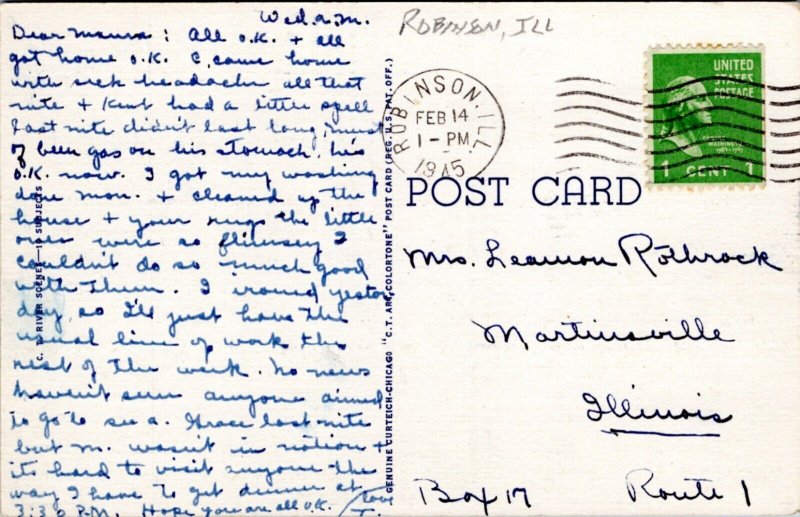 Wed. a.m.
Dear Mama: All O.K. + all
got home O.K. C. came home
with sick headache all that
nite + Kent had a little spell
last nite didn't last long, must
of been gas on his stomach. he's
O.K. now. I got my washing
done mon. + cleaned up the
house + your rugs the little
ones were so flimsey I
couldn't do so much good
with them. I ironed yester
day, so I'll just have the
usual line of work the
rest of the week. No news
haven't seen anyone aimed
to go to see a. Grace last nite
but m. wasn't in notion +
its hard to visit anyone the
way I have to get dinner at
3:30 P.M. Hope you are all O.K.
Love
C. T. RIVER SCENES—10 SUBJECTS
GENUINE CURTEICH-CHICAGO "C.T. ART COLORTONE" POST CARD (REG. U.S. PAT. OFF.)
ROBINSON, ILL
ROBINSON, ILL
FEB 14
1 - PM
1945
UNITED
STATES
POSTAGE
GEORGE
WASHINGTON
1 CENT 1
POST CARD
Mrs. Leamon Rothrock
Martinsville
Illinois
Box 17 Route 1